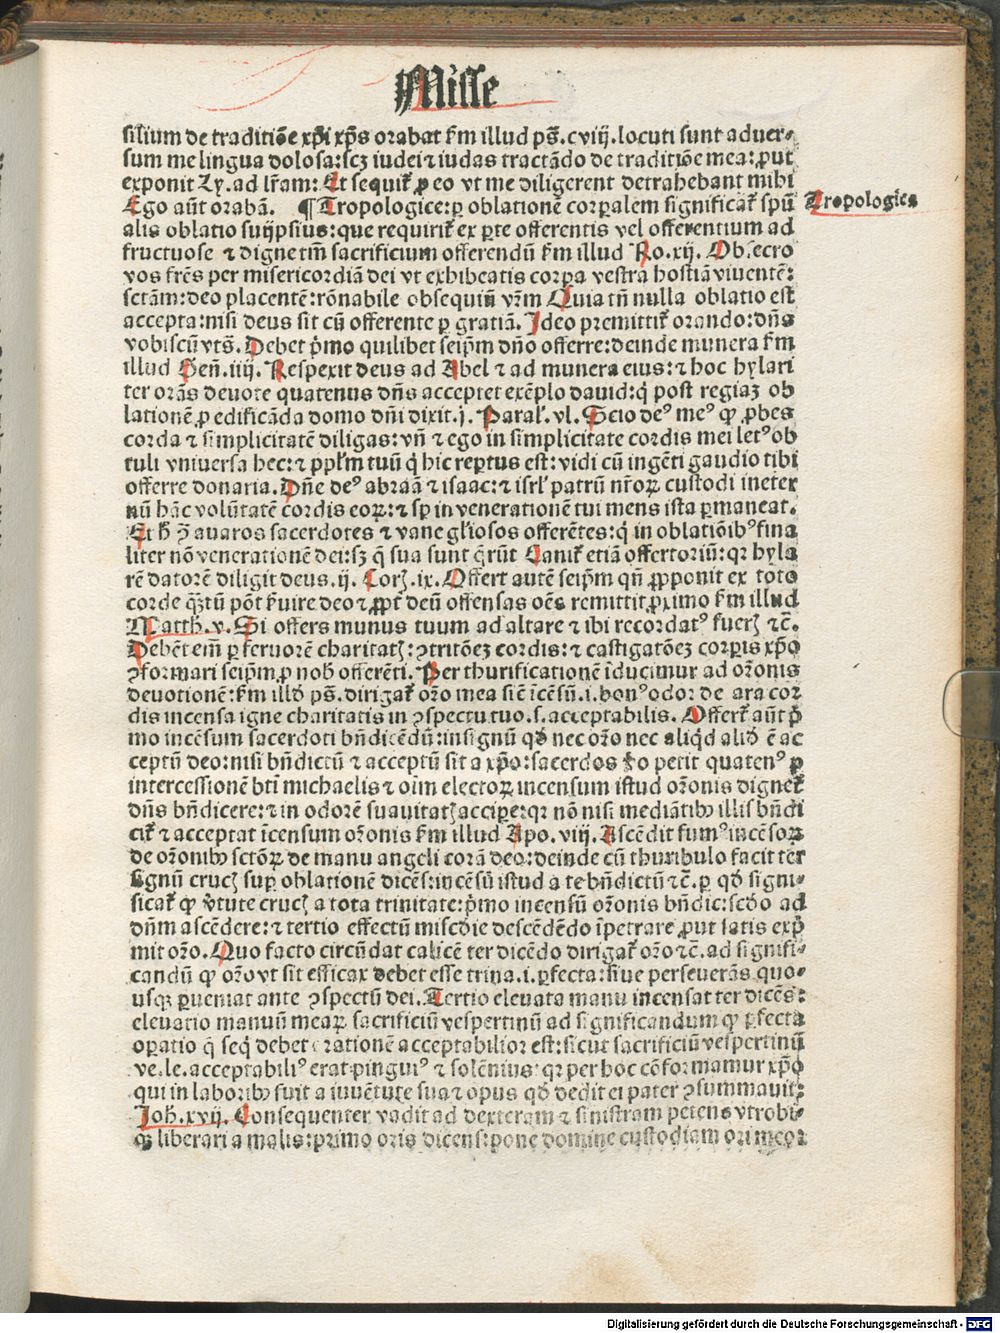 Misse
silium de traditiōe xp̄i xp̄s orabat ẜm illud ps̄. cviij. locuti sunt aduer⸗
sum me lingua dolosa: scȝ iudei ⁊ iudas tractādo de traditiōe mea: ꝓut
exponit Ly. ad lr̄am: Et sequit᷑ ꝓ eo vt me diligerent detrahebant mihi
Ego aūt orabā. ¶ Tropologice: ꝑ oblationē corꝑalem significat᷑ spū
Tropologice
alis oblatio suijpsius: que requirit᷑ ex ꝑte offerentis vel offerentium ad
fructuose ⁊ digne tm̄ sacrificium offerendū ẜm illud Ro. xij. Obsecro
vos fr̄es per misericordiā dei vt exhibeatis corꝑa vestra hostiā viuentē:
sctām: deo placentē: rōnabile obsequiū vr̄m Quia tn̄ nulla oblatio est
accepta: nisi deus sit cū offerente ꝑ gratiā. Ideo premittit᷑ orando: dn̄s
vobiscū vts̄. Debet p̄mo quilibet seip̄m dn̄o offerre: deinde munera ẜm
illud Gen̄. iiij. Respexit deus ad Abel ⁊ ad munera eius: ⁊ hoc hylari
ter orās deuote quatenus dn̄s acceptet exēplo dauid: q̇ post regiaȝ ob
lationē ꝓ edificāda domo dn̄i dixit. j. Paral̕. vl. Scio deꝰ meꝰ ꝙ ꝓbes
corda ⁊ simplicitatē diligas: vn̄ ⁊ ego in simplicitate cordis mei letꝰ ob
tuli vniuersa hec: ⁊ ppl̄m tuū q̇ hic reꝑtus est: vidi cū ingēti gaudio tibi
offerre donaria. Dn̄e deꝰ abraā ⁊ isaac: ⁊ isrl̕ patrū nr̄oꝝ custodi ineter
nū hāc volūtatē cordis eoꝝ: ⁊ sꝑ in venerationē tui mens ista ꝑmaneat.
Et h̄ ꝯ̄ auaros sacerdotes ⁊ vane gl̄iosos offerētes: q̇ in oblatiōibꝰ fina
liter nō venerationē dei: sȝ q̄ sua sunt q̄rūt Canit᷑ etiā offertoriū: qꝛ hyla
rē datorē diligit deus. ij. Corꝫ. ix. Offert autē seip̄m qn̄ ꝓponit ex toto
corde q̄ȝtū pōt ẜuire deo ⁊ ꝓpt̄ deū offensas oēs remittit ꝓximo ẜm illud
Matth. v. Si offers munus tuum ad altare ⁊ ibi recordatꝰ fuerꝫ ⁊c̄.
Debēt em̄ ꝑ feruorē charitatꝫ: ꝯtritōeȝ cordis: ⁊ castigatōeȝ corꝑis xp̄o
ꝯformari seip̄m ꝓ nob̄ offerēti. Per thurificationē īducimur ad orōnis
deuotionē: ẜm illd̄ ps̄. dirigat᷑ orō mea sic̄ īcēsū. i. bonꝰ odor de ara cor
dis incensa igne charitatis in ꝯspectu tuo. s. acceptabilis. Offert᷑ aūt p̄
mo incēsum sacerdoti bn̄dicēdū: insignū qd̄ nec orō nec aliq̇d aliō ē ac
ceptū deo: nisi bn̄dictū ⁊ acceptū sit a xp̄o: sacerdos ꝟo petit quatenꝰ ꝑ
intercessionē bt̄i michaelis ⁊ oīm electoꝝ incensum istud orōnis dignet᷑
dn̄s bn̄dicere: ⁊ in odorē suauitatꝫ accipe: qꝛ nō nisi mediātibꝰ illis bn̄di
cit᷑ ⁊ acceptat īcensum orōnis ẜm illud Apo. viij. Ascēdit fumꝰ incēsoꝝ
de orōnibꝰ sctōꝝ de manu angeli corā deo: deinde cū thuribulo facit ter
signū crucꝫ suꝑ oblationē dicēs: incēsū istud a te bn̄dictū ⁊c̄. ꝑ qd̄ signi⸗
ficat᷑ ꝙ ꝟtute crucꝫ a tota trinitate: p̄mo incensū orōnis bn̄dic: scd̄o ad
dn̄m ascēdere: ⁊ tertio effectū miscd̄ie descēdēdo īpetrare ꝓut satis exp̄
mit orō. Quo facto circūdat calicē ter dicēdo dirigat᷑ orō ⁊c̄. ad signifi⸗
candū ꝙ orō vt sit efficax debet esse trina. i. ꝑfecta: siue perseuerās quo⸗
usqꝫ ꝑueniat ante ꝯspectū dei. Tertio eleuata manu incensat ter dicēs:
eleuatio manuū meaꝝ sacrificiū vespertinū ad significandum ꝙ ꝑfecta
oꝑatio q̄ seq̇ debet orationē acceptabilior est: sicut sacrificiū vespertinū
ve. le. acceptabiliꝰ erat pinguiꝰ ⁊ solēnius: qꝛ per hoc cōformamur xp̄o
qui in laboribꝰ fuit a iuuētute sua ⁊ opus qd̄ dedit ei pater ꝯsummauit:
Joh. xvij. Consequenter vadit ad dexteram ⁊ sinistram petens vtrobi⸗
qꝫ liberari a malis: primo oris dicens: pone domine custodiam ori meo:
Digitalisierung gefördert durch die Deutsche Forschungsgemeinschaft - DFG